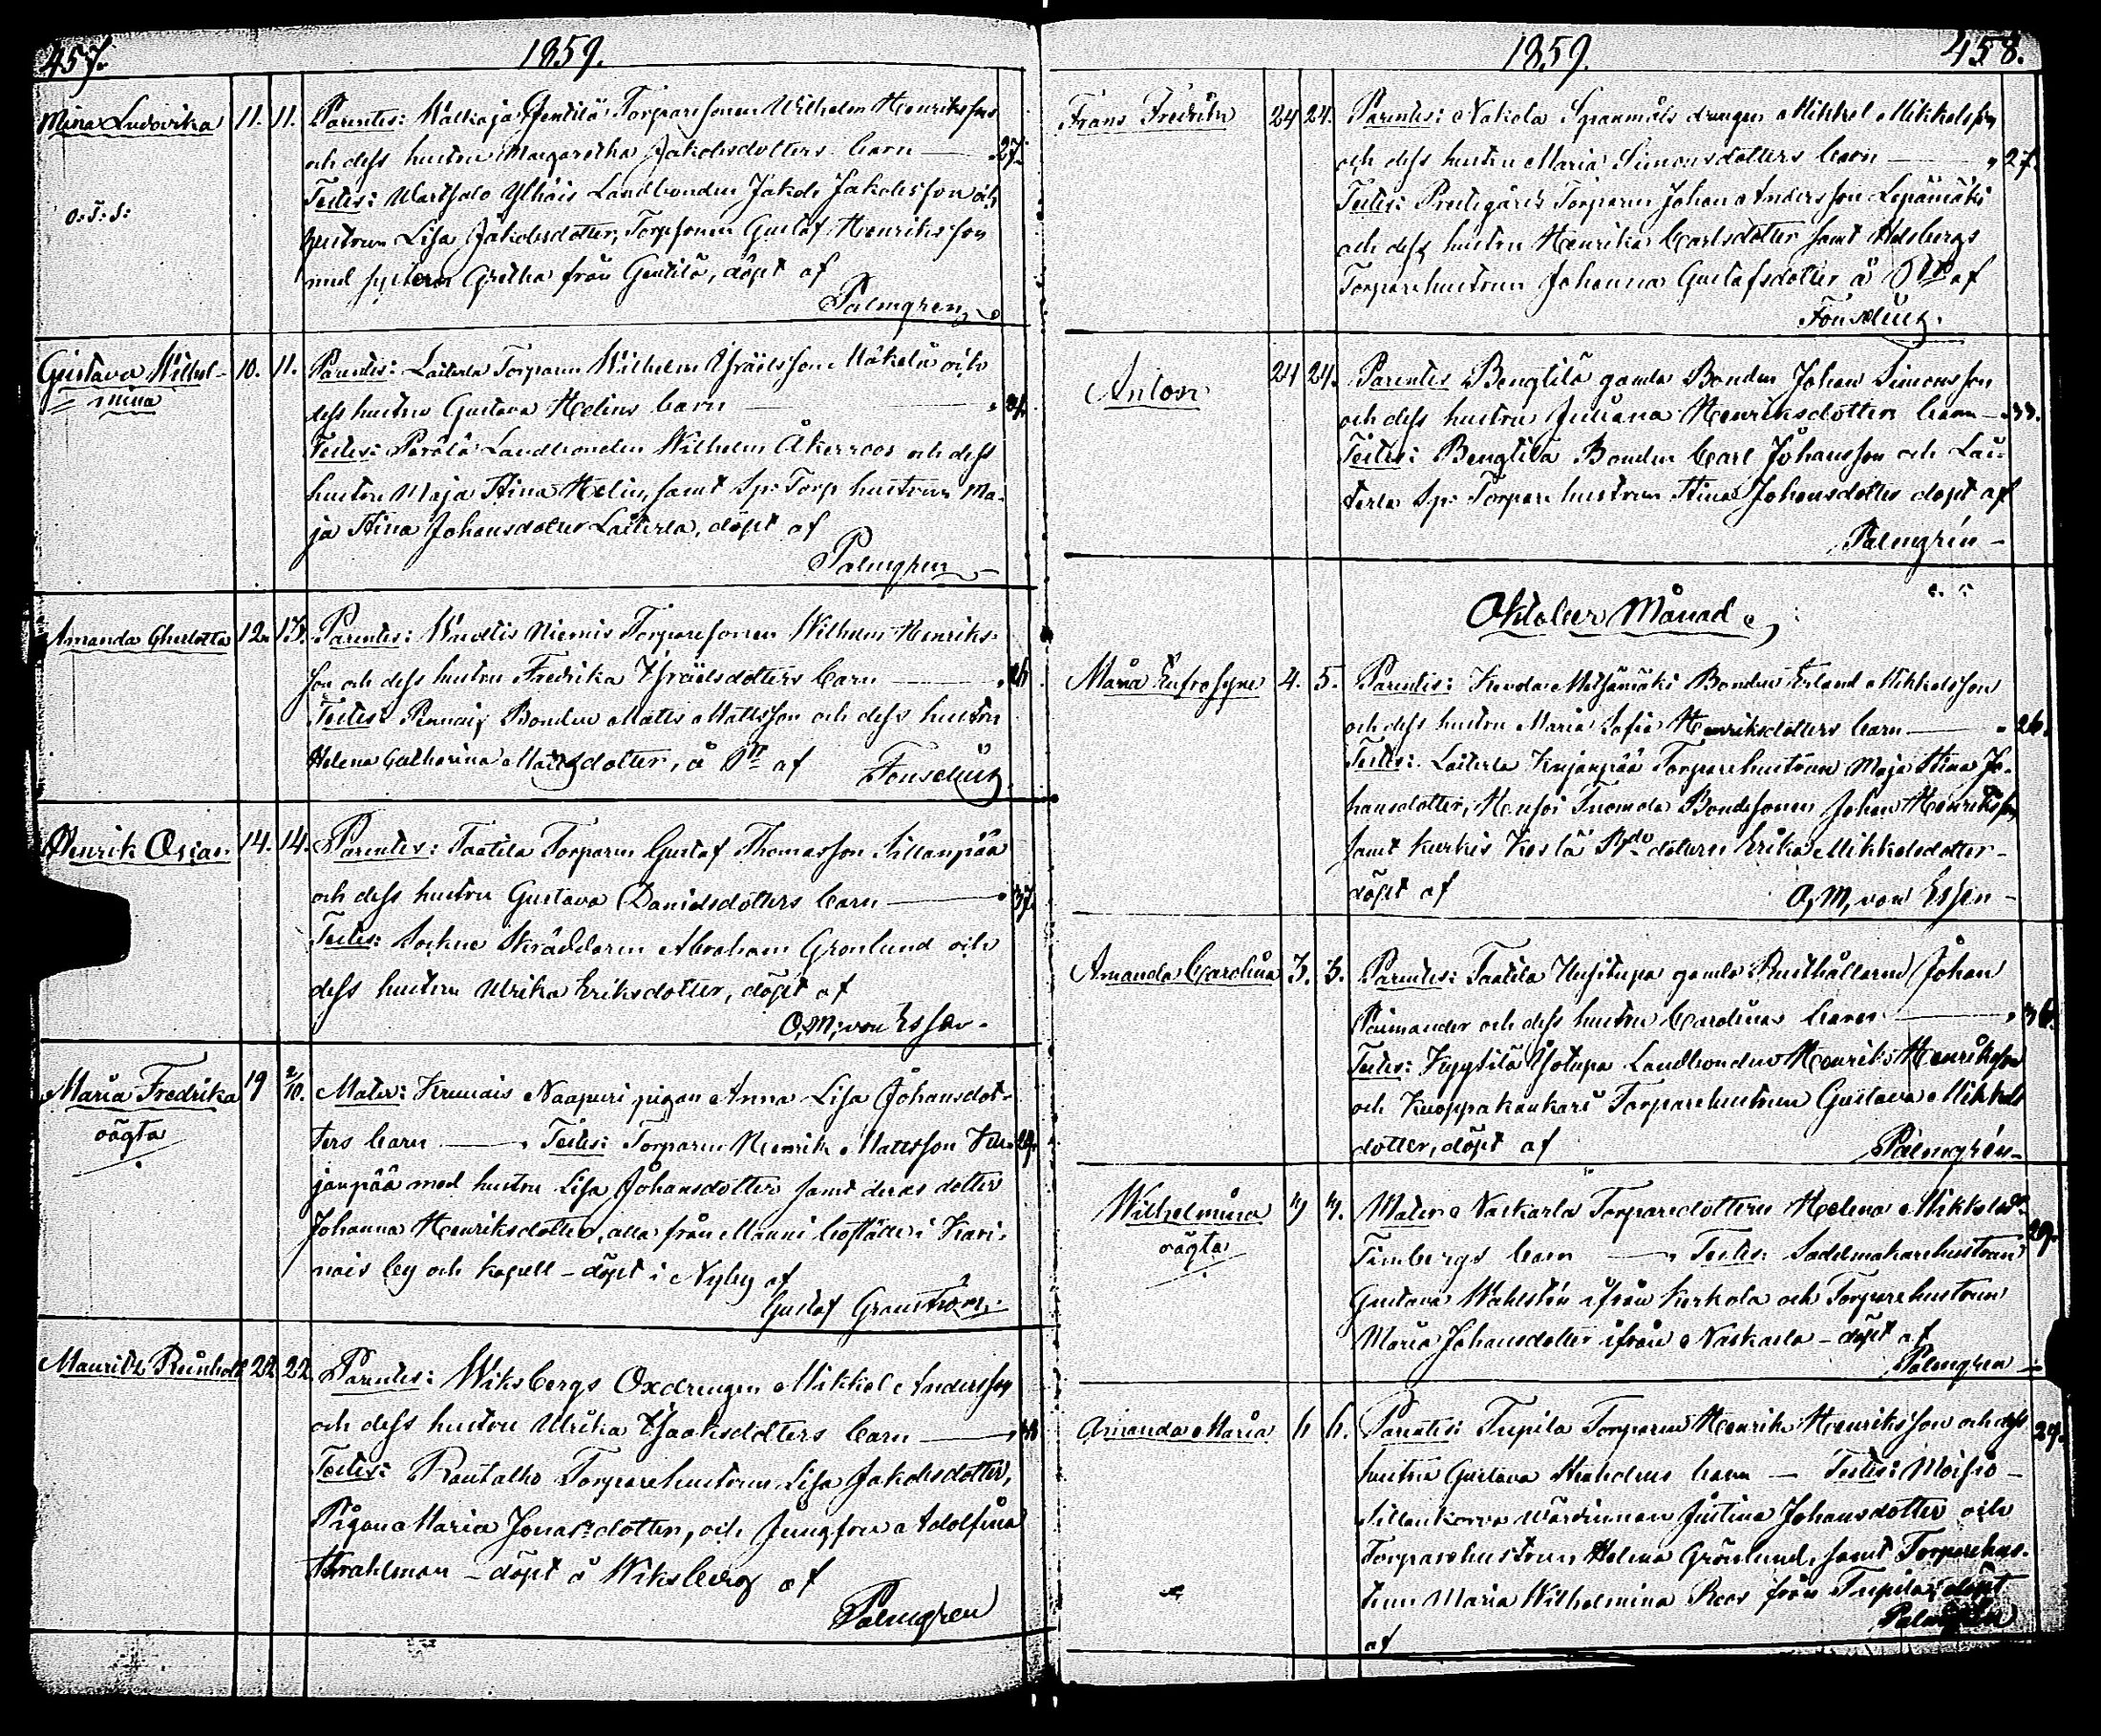 457. 1859.
Mina Ludovika 11. 11. Parentes: Torparesonen Wilhelm Henriksson
och dess hustru Margaretha Jakobsdotters barn — 27.
Testes: Landbonden Jakob Jakobsson och
o.s.s: hustrun Lisa Jakobsdotter, Torpsonen Gustaf Henriksson
med systern Gretha från Gentilä, döpt af
Palmgren
Gustava Wilhel- 10. 11. Parentes: Laiterla Torparen Wilhelm Israelsson Mäkelä och
mina dess hustru Gustava Helins barn —
Testes: Perälä Landbonden Wilhelm Åkerroos och dess
hustru Maja Stina Helin, samt Sp: Torp hustrun Ma-
ja Stina Johansdotter Laiterla, döpt af
Palmgren
Amanda Charlotta 12. 13. Parentes: Niemis Torparesonen Wilhelm Henriks-
son och dess hustru Fredrika Israelsdotters barn — 26
Testes: Bonden Matts Mattsson och dess hustru
Helena Catharina Mattsdotter, å Ptt af Fonselius
Henrik Oskar 14. 14. Parentes: Taatila Torparen Gustaf Thomasson Sillanpää
och dess hustru Gustava Danielsdotters barn — 37.
Testes: Sockne Skräddaren Abraham Grönlund och
dess hustru Ulrika Eriksdotter, döpt af
O. M. von Essen
Maria Fredrika 19 2/10. Mater: Naapuri pigan Anna Lisa Johansdot-
oägta ters barn — Testes: Torparen Henrik Mattsson Ku- 29.
janpää med hustru Lisa Johansdotter samt deras dotter
Johanna Henriksdotter, alla från Manni boställe i Kari-
nais by och Kapell – döpt i Nyby af
Gustaf Granström
Mauritz Reinhold 22 22 Parentes: Wiksbergs Oxdrengen Mikkel Andersson
och dess hustru Ulrika Isaaksdotters barn —
Testes: Rautalho Torparehustrun Lisa Jakobsdotter,
Pigan Maria Jonasdotter, och Jungfru Adolfina
Strahlman – döpt å Wiksberg af
Palmgren
1859. 458.
Frans Fredrik 24 24. Parentes: Nakola drengen Mikkel Mikkelsson
och dess hustru Maria Simonsdotters barn — 27.
Testes: Prestgårds Torparen Johan Andersson Lepämäki
och dess hustru Henrika Carlsdotter samt
Torparehustrun Johanna Gustafsdotter å Ptt af
Fonselius.
Anton 24 24. Parentes Bengtilä gamla Bonden Johan Simonsson
och dess hustru Juliana Henriksdotters barn — 33.
Testes: Bengtilä Bonden Carl Johansson och Lai-
terla Sp: Torpare hustrun Stina Johansdotter döpt af
Palmgrén –
Oktober Månad
Maria Eufrosyne 4. 5. Parentes: Bonden Erland Mikkelsson
och dess hustru Maria Sofia Henriksdotters barn — 26.
Testes: Laiterla Kujanpää Torparehustrun Maja Stina Jo-
hansdotter, Tuomola Bondesonen Johan Henriksson
samt Kurkis dottern Erika Mikkelsdotter –
döpt af O. M. von Essen –
Amanda Carolina 3. 3. Parentes: Taatila Uusitupa gamla Rusthållaren Johan
Paimander och dess hustru Carolinas barn — 36.
Testes: Isotupa Landbonden Henrik Henriksson
och Torparehustrun Gustava Mikkels
dotter, döpt af Palmgrén –
Wilhelmina 3. Mater Naskarla Torparedottern Helena Mikkelsdr
oägta Timbergs barn — Testes: Sadelmakarehustrun 29.
Gustava Wahlstén ifrån Kerkola och Torparehustrun
Maria Johansdotter ifrån Naskarla – döpt af
Palmgren –
Amanda Maria 6 6. Parentes: Tupila Torparen Henrik Henriksson och dess 29.
hustru Gustava barn — Testes: Moisio –
Sillankorva Wärdinnan Justina Johansdotter och
Torparehustrun Helena Grönlund, samt Torparehus-
trun Maria Wilhelmina Roos från Tupila, döpt
af Palmgren